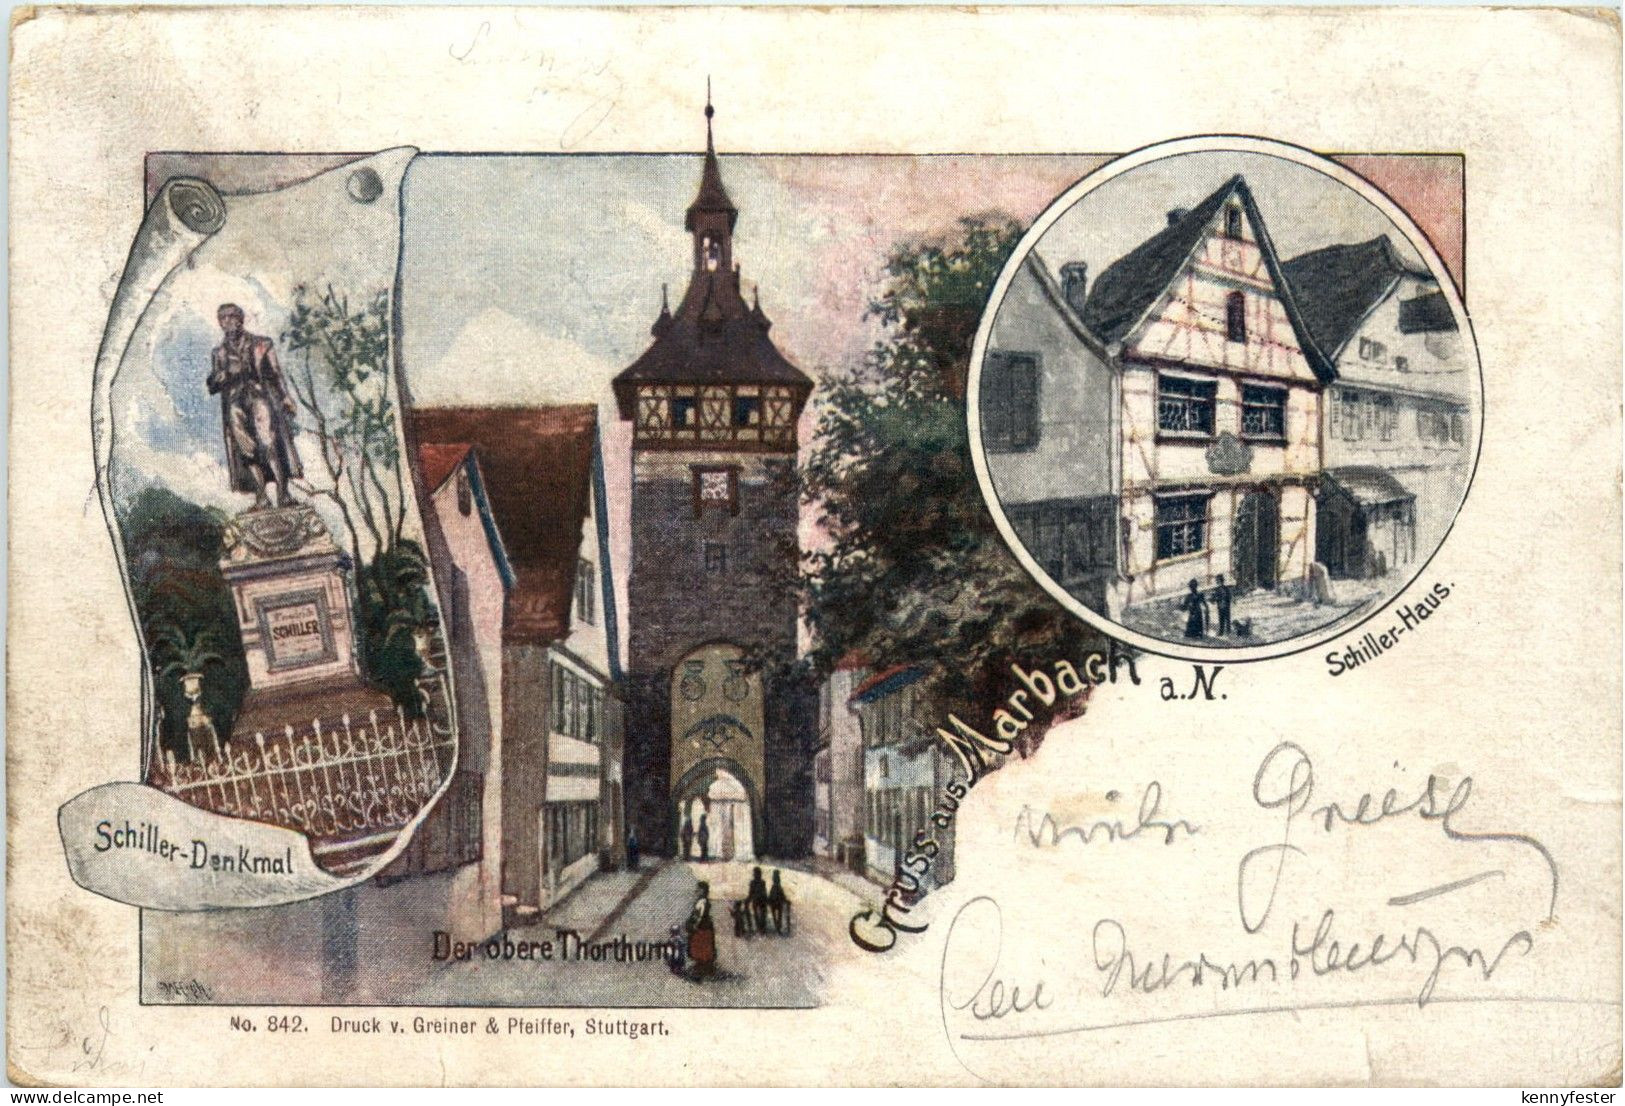 Friedrich
SCHILLER
Schiller-Denkmal
Der obere Thorthurm
Gruss aus Marbach a.N.
Schiller-Haus.
viele Grüsse
No. 842. Druck v. Greiner & Pfeiffer, Stuttgart.
delcampe.net
kennyfester